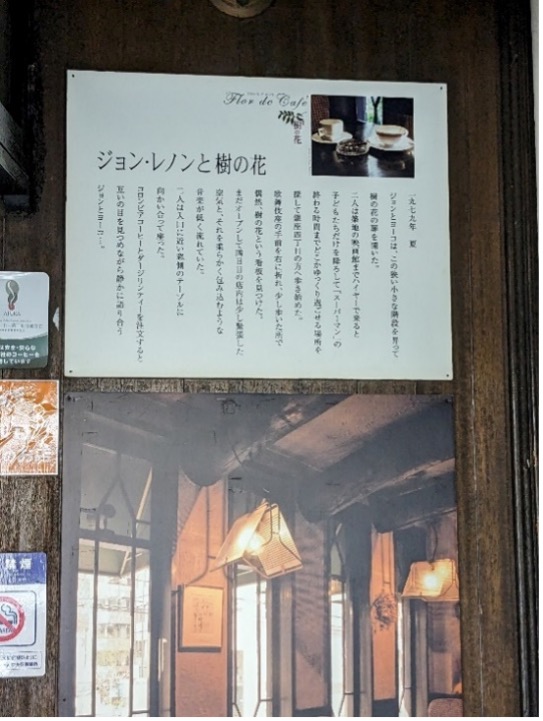 Flor de Café
樹の花
ジョン・レノンと樹の花
一九七九年 夏
ジョンとヨーコは、この狭い小さな階段を昇って、
樹の花の扉を開いた。
二人は築地の映画館までハイヤーで来ると
子どもたちだけを降ろして「スーパーマン」の
終わる時間までどこかゆっくり過ごせる場所を
探して銀座四丁目の方へ歩き始めた。
歌舞伎座の手前を右に折れ、少し歩いた所で
偶然、樹の花という看板を見つけた。
まだオープンして四日目の店内は少し緊張した
空気と、それを柔らかく包み込むような
音楽が低く流れていた。
二人は入口に近い窓側のテーブルに
向かい合って座った。
コロンビアコーヒーとダージリンティーを注文すると、
互いの目を見つめながら静かに語り合う
ジョンとヨーコ…。
禁煙